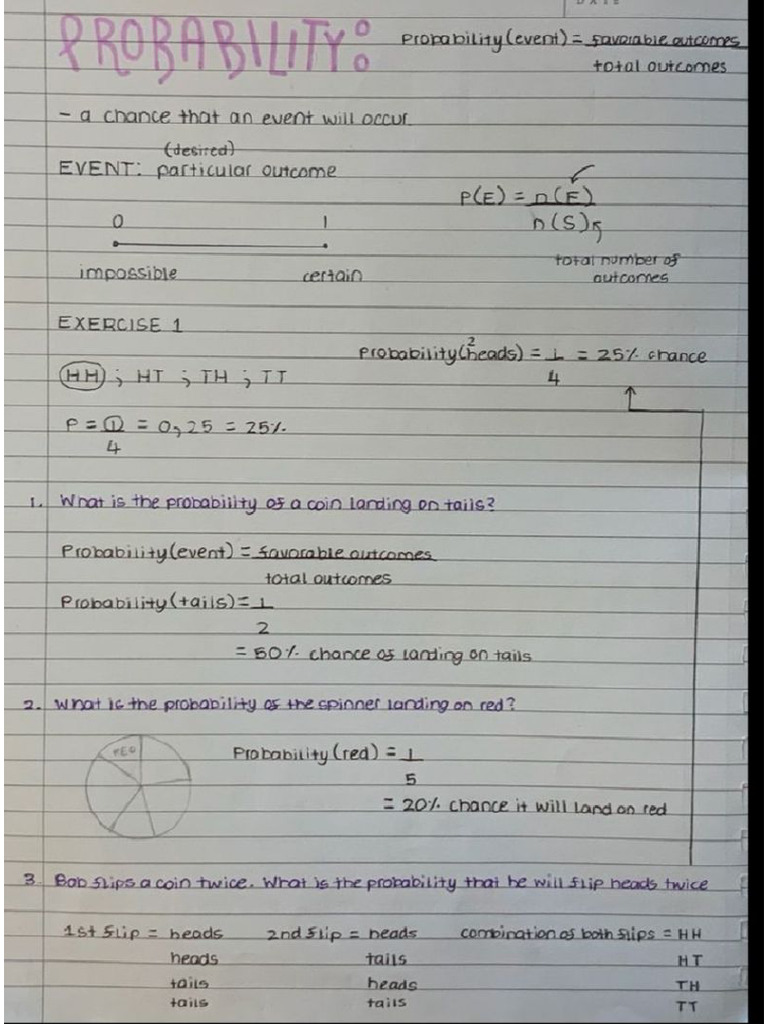 DATE
PROBABILITY:
Probability (event) = favorable outcomes
total outcomes
- a chance that an event will occur.
(desired)
EVENT: particular outcome
P(E) = n(E)
n(S)
0 1
impossible certain
total number of
outcomes
EXERCISE 1
2
Probability(heads) = 1 = 25% chance
4
HH ; HT ; TH ; TT
P = 1 = 0,25 = 25%
4
1. What is the probability of a coin landing on tails?
Probability(event) = favorable outcomes
total outcomes
Probability(tails) = 1
2
= 50% chance of landing on tails
2. What is the probability of the spinner landing on red?
RED
Probability (red) = 1
5
= 20% chance it will land on red
3. Bob flips a coin twice. What is the probability that he will flip heads twice
1st flip = heads 2nd flip = heads combination of both flips = HH
heads tails HT
tails heads TH
tails tails TT